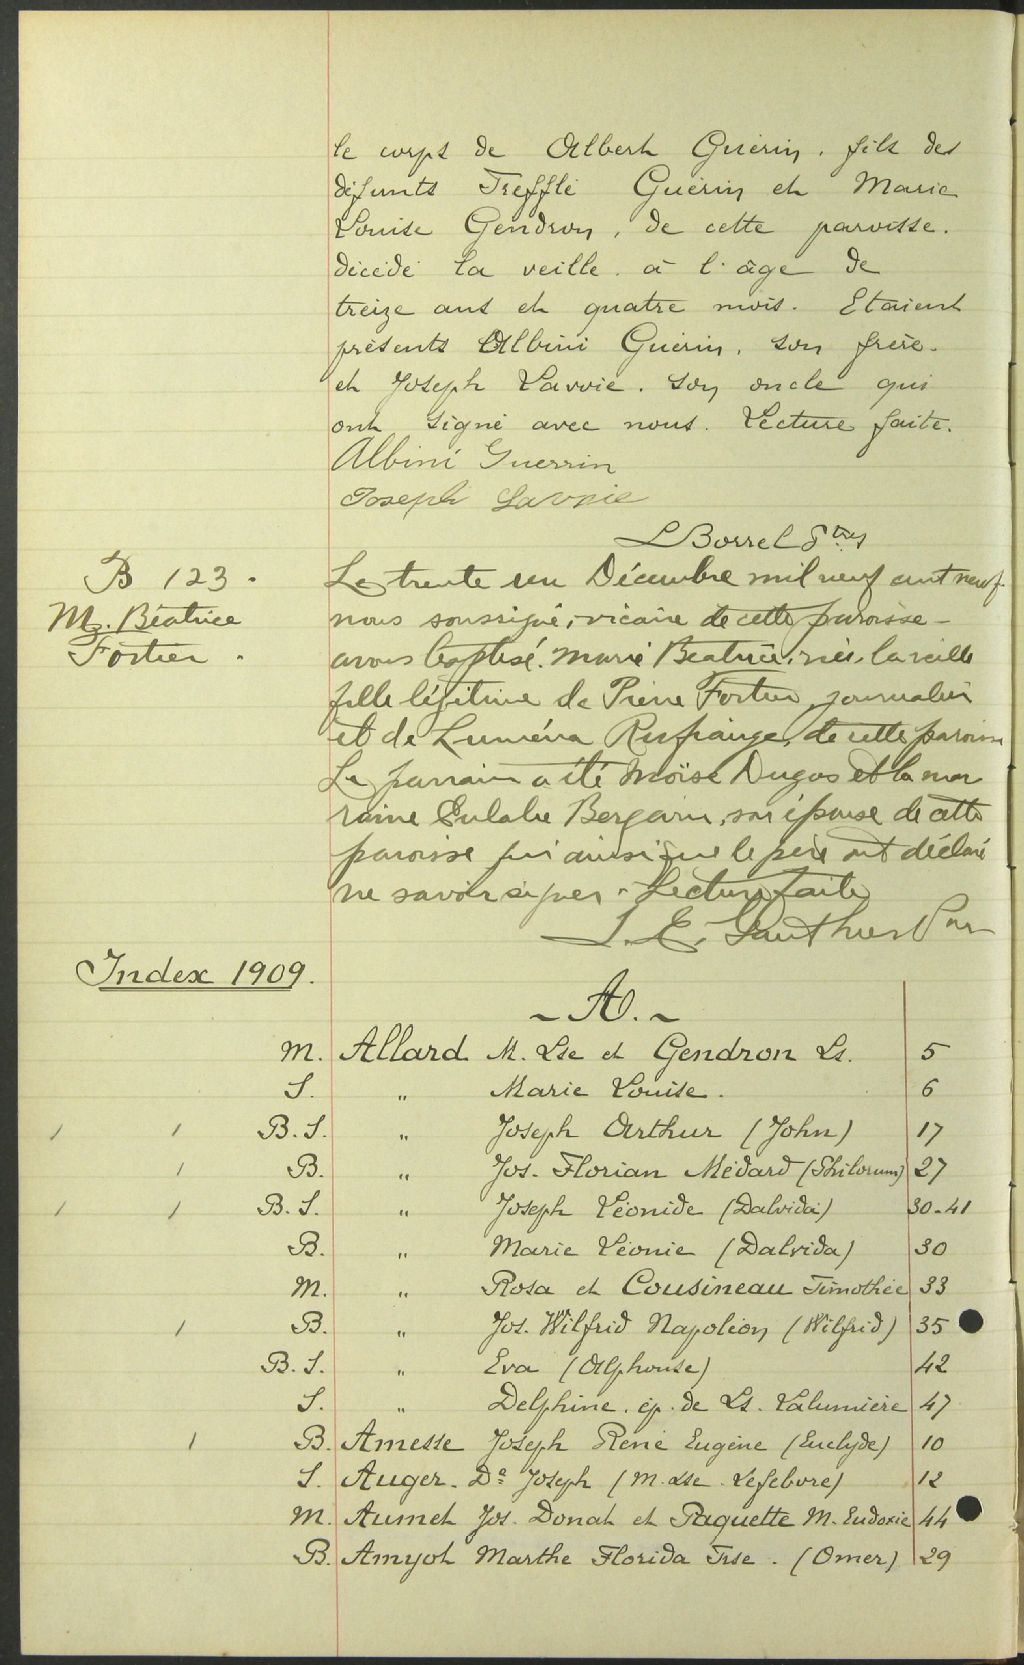 le corps de Albert Guérin, fils des
défunts Trefflé Guérin et Marie
Louise Gendron, de cette paroisse.
décédé la veille à l'âge de
treize ans et quatre mois. Etaient
présents Albini Guérin, son frère.
et Joseph Lavoie. son oncle qui
ont signé avec nous. Lecture faite.
Albini Guerrin
Joseph Lavoie
L Borrel Ptre
B 123.
M. Béatrice
Fortier.
Le trente un Décembre mil neuf cent neuf.
nous soussigné, vicaire de cette paroisse
avons baptisé. Marie Beatrice, née, la veille
fille légitime de Pierre Fortier, journalier
et de Luména de cette paroisse
Le parrain a été Moïse Dugas et la mar
raine Eulalie son épouse de cette
paroisse qui ainsi que le père ont déclaré
ne savoir signer. Lecture faite
J. E. Gauthier
Index 1909.
~ A. ~
M. Allard M. Lse et Gendron Ls. 5
S. " Marie Louise. 6
B. S. " Joseph Arthur (John) 17
B. " Jos. Florian Médard (Philorum) 27
B. S. " Joseph Léonide (Dalvida) 30-41
B. " Marie Léonie (Dalvida) 30
M. " Rosa et Cousineau Timothée 33
B. " Jos. Wilfrid Napoléon (Wilfrid) 35
B. S. " Eva (Alphonse) 42
S. " Delphine. ép. de Ls. Lalumière 47
B. Amesse Joseph René Eugène (Euclyde) 10
S. Auger. De Joseph (M. Lse. Lefebvre) 12
M. Aumet Jos. Donat et Paquette M. Eudoxie 44
B. Amyot Marthe Florida Trse. (Omer) 29